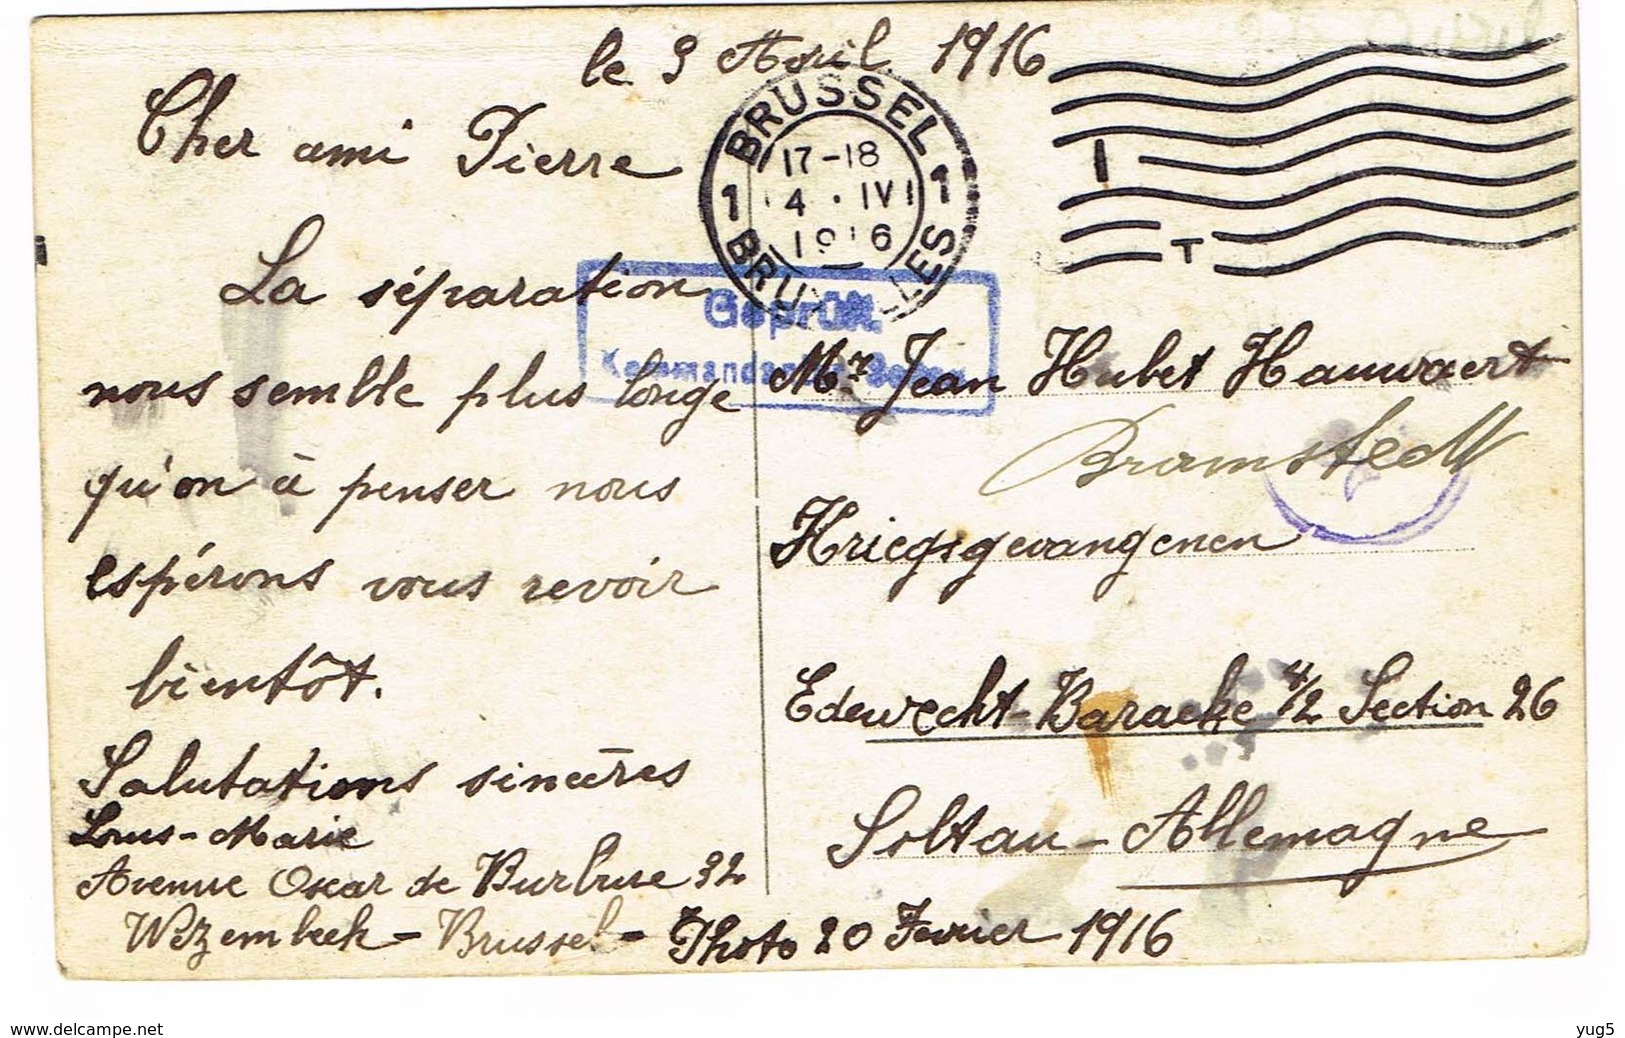 le 3 Avril 1916
Cher ami Pierre
La séparation
nous semble plus longe
qu'on à penser nous
espérons vous revoir
bientôt.
Salutations sincères
Louis-Marie
Avenue Oscar de Burbure 32
Wezembeek - Brussel - Photo 20 Fevrier 1916
BRUSSEL
1 17-18 1
4 . IV
1916
BRUXELLES
Geprüft.
Mr Jean Hubet Hauwaert
Bramstedt
Kriegsgevangenen
Edewecht-Baracke 4/2 Section 26
Soltau - Allemagne
www.delcampe.net
yug5